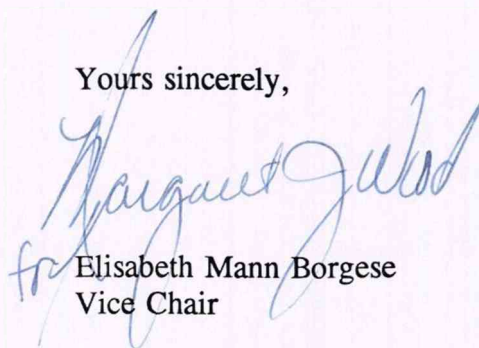 Yours sincerely,
Margaret J Wood
for Elisabeth Mann Borgese
Vice Chair